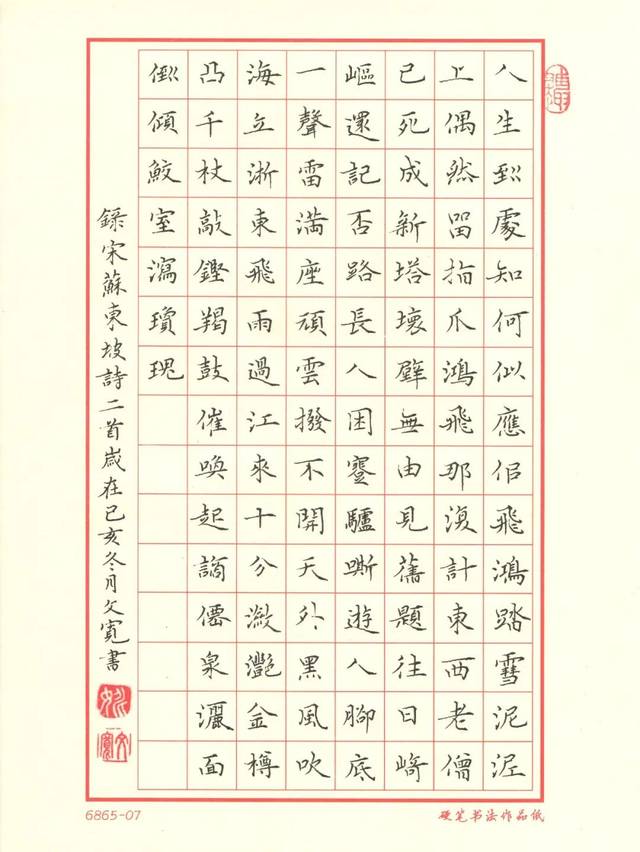 人生到處知何似應佀飛鴻踏雪泥泥
上偶然留指爪鴻飛那復計東西老僧
已死成新塔壞壁無由見舊題往日崎
嶇還記否路長人困蹇驢嘶遊人腳底
一聲雷滿座頑雲撥不開天外黑風吹
海立浙東飛雨過江來十分瀲灩金樽
凸千杖敲鏗羯鼓催喚起謫僊泉灑面
倒傾鮫室瀉瓊瑰
錄宋蘇東坡詩二首歲在己亥冬月文寬書
6865-07
硬笔书法作品纸